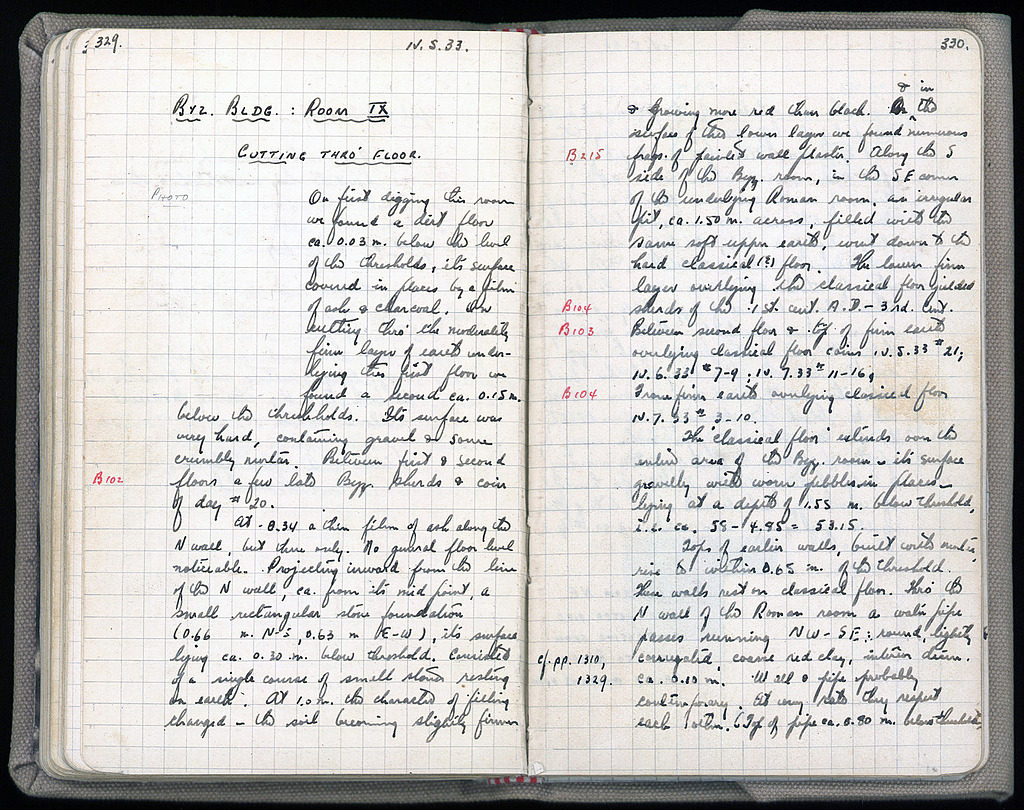 329.
IV. 5. 33.
BYZ. BLDG. : ROOM IX
CUTTING THRO' FLOOR.
PHOTO
On first digging this room
we found a dirt floor
ca. 0.03 m. below the level
of the thresholds, its surface
covered in places by a film
of ash & charcoal. On
cutting thro' the moderately
firm layer of earth under-
lying this first floor we
found a second ca. 0.15 m.
below the thresholds. Its surface was
very hard, containing gravel & some
crumbly mortar. Between first & second
B102
floors a few late Byz. sherds & coin
of day # 20.
At -0.34 a thin film of ash along the
N wall, but there only. No general floor level
noticeable. Projecting inward from the line
of the N wall, ca. from its mid point, a
small rectangular stone foundation
(0.66 m. N-S, 0.63 m E-W), its surface
lying ca. 0.30 m. below threshold. Consisted
of a single course of small stones resting
on earth. At 1.0 m. the character of filling
changed – the soil becoming slightly firmer
330.
& in
& growing more red than black. the
surface of this lower layer we found numerous
B215
frags. of painted wall plaster. Along the S
side of the Byz. room, in the SE corner
of the underlying Roman room, an irregular
pit, ca. 1.50 m. across, filled with the
same soft upper earth, went down to the
hard classical (?) floor. The lower firm
layer overlying the classical floor yielded
B104
sherds of the 1st. cent. A.D. – 3rd. cent.
B103
Between second floor & top of firm earth
overlying classical floor coins IV. 5. 33 # 21;
IV. 6. 33 # 7-9; IV. 7. 33 # 11-16;
B104
From firm earth overlying classical floor
IV. 7. 33 # 3-10.
The 'classical floor' extends over the
entire area of the Byz. room – its surface
gravelly with worn pebbles in places –
lying at a depth of 1.55 m. below threshold,
i.e. ca. 58 – 4.85 = 53.15.
Tops of earlier walls, built with mortar,
rise to within 0.65 m. of the threshold.
These walls rest on classical floor. Thro' the
N wall of the Roman room a water pipe
passes running NW-SE: round, lightly
cf. pp. 1310,
1329.
corrugated, coarse red clay, interior diam.
ca. 0.10 m. Wall & pipe probably
contemporary. At any rate they respect
each other. (Top of pipe ca. 0.80 m. below threshold.